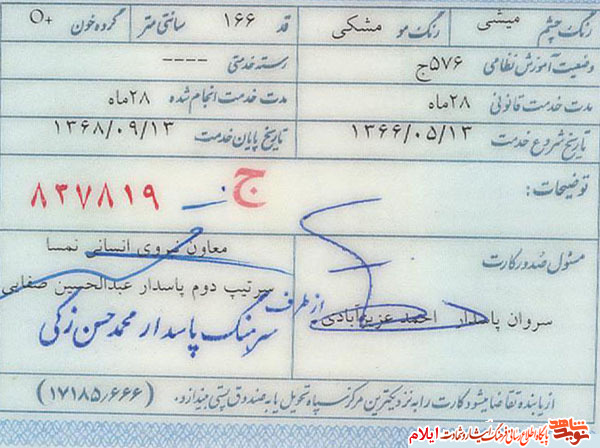 رنگ چشم میشی رنگ مو مشکی قد ۱۶۶ سانتی متر گروه خون O+
وضعیت آموزش نظامی ۵۷۶ج رسته خدمتی ----
مدت خدمت قانونی ۲۸ماه مدت خدمت انجام شده ۲۸ماه
تاریخ شروع خدمت ۱۳۶۶/۰۵/۱۳ تاریخ پایان خدمت ۱۳۶۸/۰۹/۱۳
توضیحات:
ج ۸۳۷۸۱۹
مسئول صدور کارت
سروان پاسدار احمد عزیزآبادی
معاون نیروی انسانی نمسا
سرتیپ دوم پاسدار عبدالحسین صفایی
از طرف
سرهنگ پاسدار محمد حسن زکی
از یابنده تقاضا میشود کارت را به نزدیکترین مرکز سپاه تحویل یا به صندوق پستی بیندازد. (۱۷۱۸۵٫۶۶۶)
نوید شاهد
پایگاه اطلاع رسانی فرهنگ ایثار و شهادت ایلام